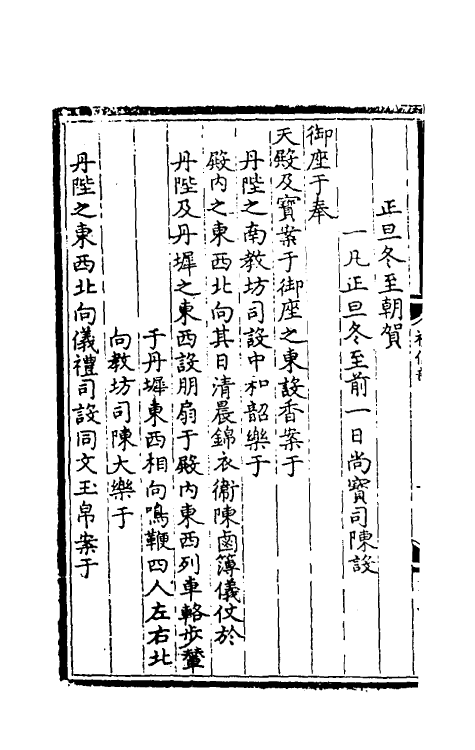 正旦冬至朝賀
一凡正旦冬至前一日尚寶司陳設
御座于奉
天殿及寶案于御座之東設香案于
丹陛之南教坊司設中和韶樂于
殿內之東西北向其日清晨錦衣衛陳鹵簿儀仗於
丹陛及丹墀之東西設明扇于殿內東西列車輅步輦
于丹墀東西相向鳴鞭四人左右北
向教坊司陳大樂于
丹陛之東西北向儀禮司設同文玉帛案于